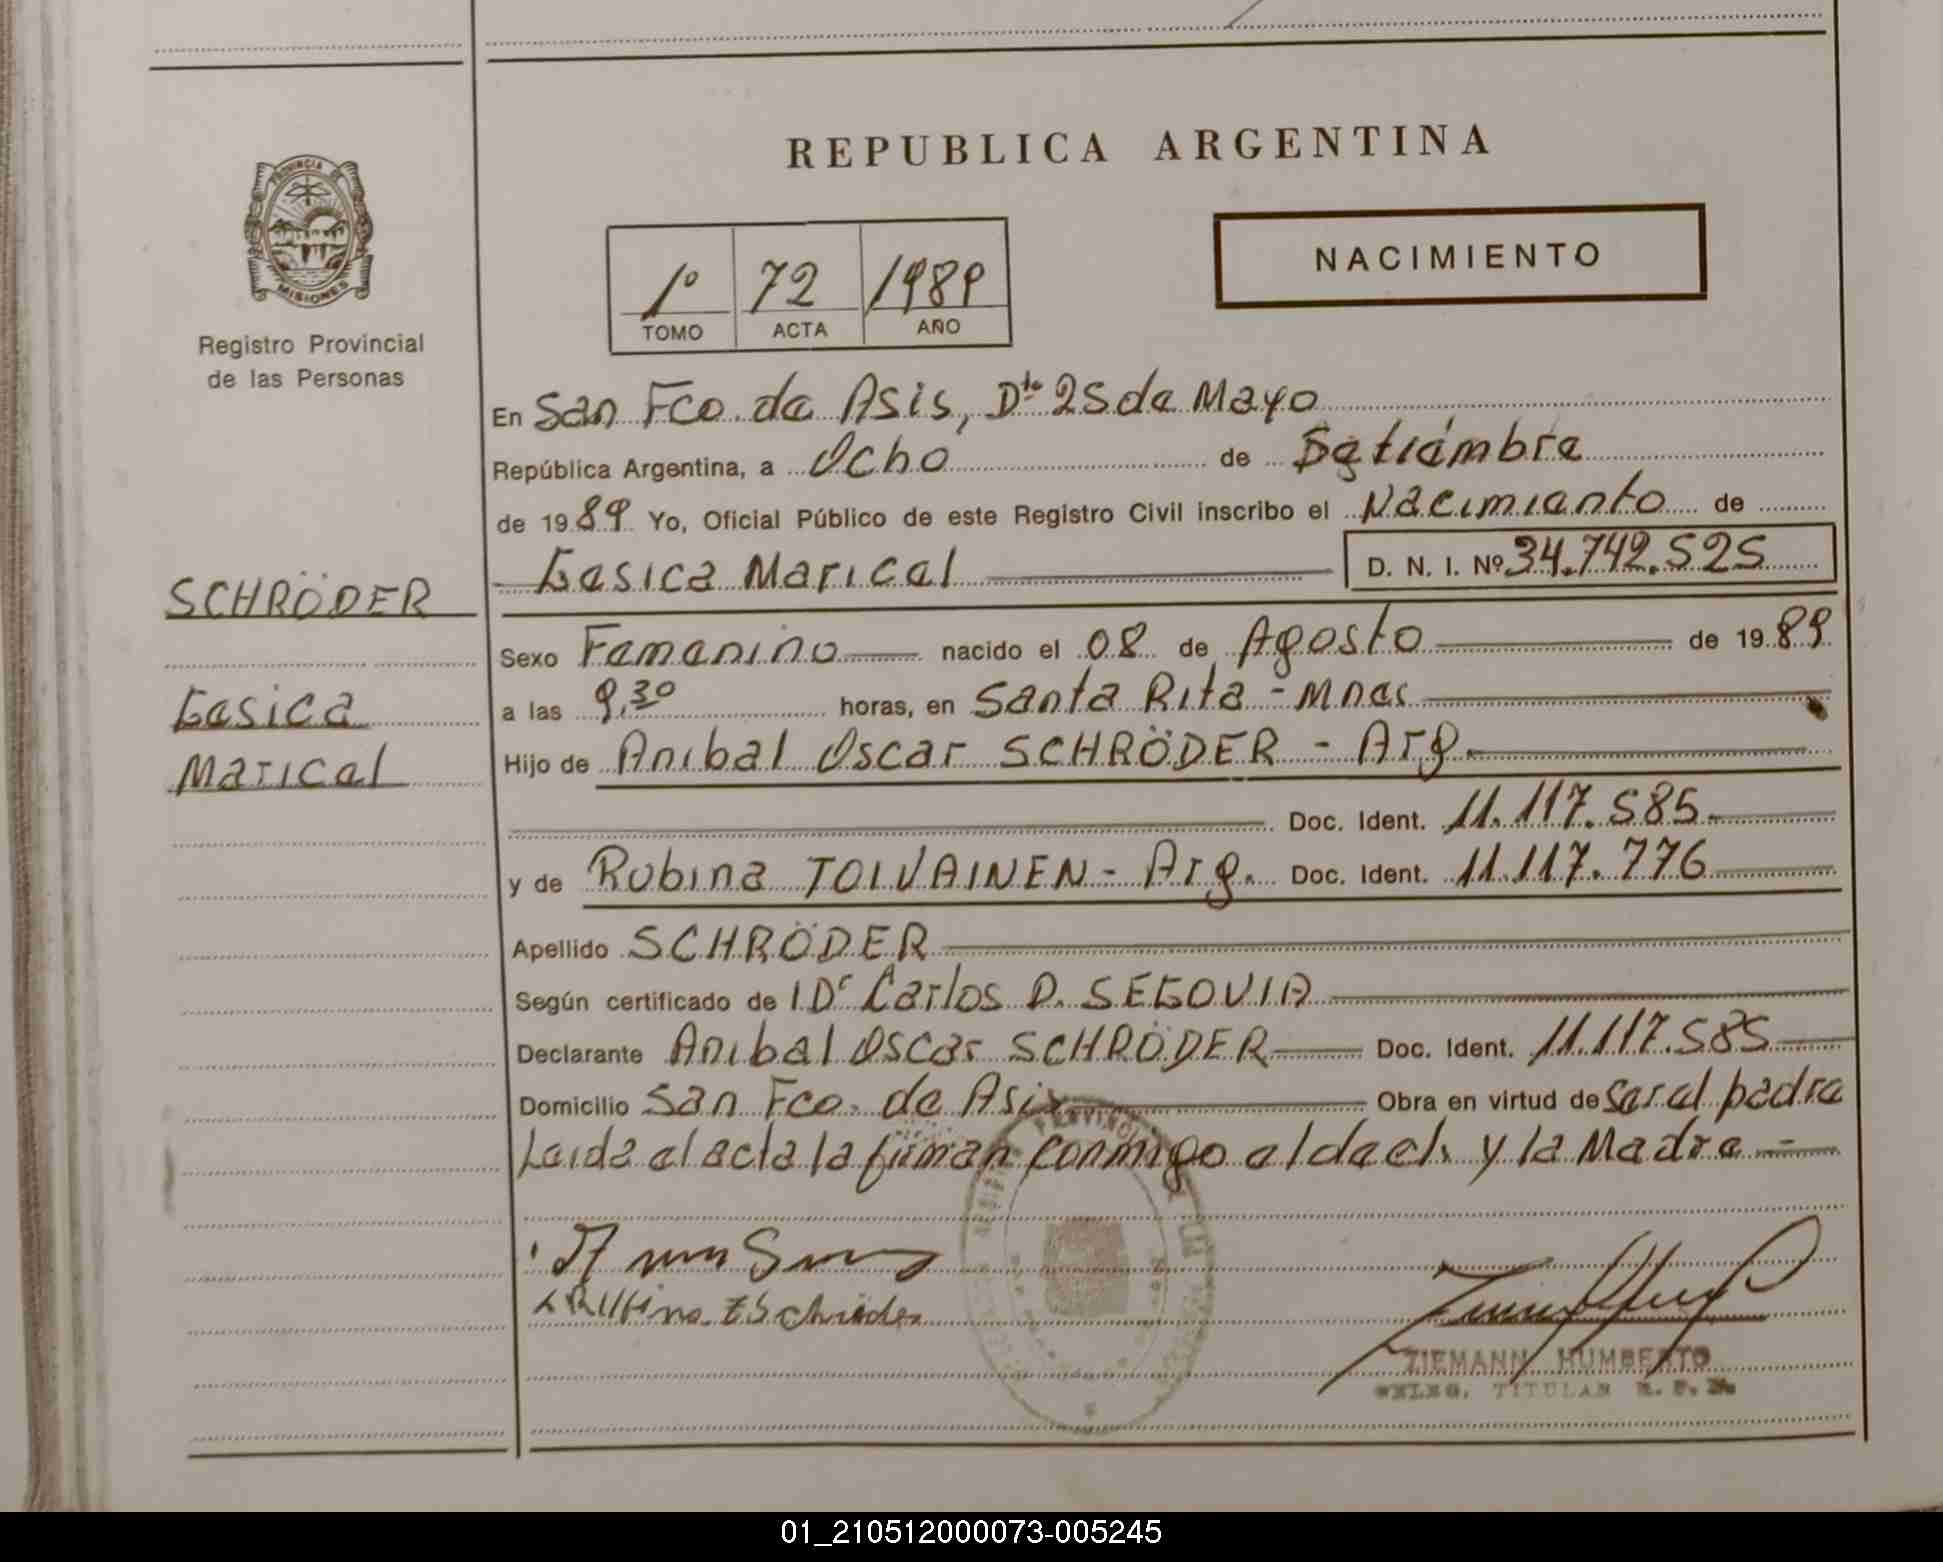 REPUBLICA ARGENTINA
PROVINCIA DE
MISIONES
Registro Provincial
de las Personas
1º 72 1989
TOMO ACTA AÑO
NACIMIENTO
En San Fco. de Asis, Dto 25 de Mayo
República Argentina, a Ocho de Setiembre
de 1989 Yo, Oficial Público de este Registro Civil inscribo el Nacimiento de
Gesica Maricel D. N. I. Nº 34.742.525
SCHRÖDER
Gesica
Maricel
Sexo Femenino nacido el 08 de Agosto de 1989
a las 9,30 horas, en Santa Rita - Mnes
Hijo de Anibal Oscar SCHRÖDER - Arg.
Doc. Ident. 11.117.585
y de Rubina TOIVAINEN - Arg. Doc. Ident. 11.117.776
Apellido SCHRÖDER
Según certificado de l Dr Carlos D. SEGOVIA
Declarante Anibal Oscar SCHRÖDER Doc. Ident. 11.117.585
Domicilio San Fco. de Asis Obra en virtud de ser el padre
Leida el acta la firman conmigo el decl. y la Madre =
ZIEMANN HUMBERTO
DELEG. TITULAR R. P. P.
01_210512000073-005245